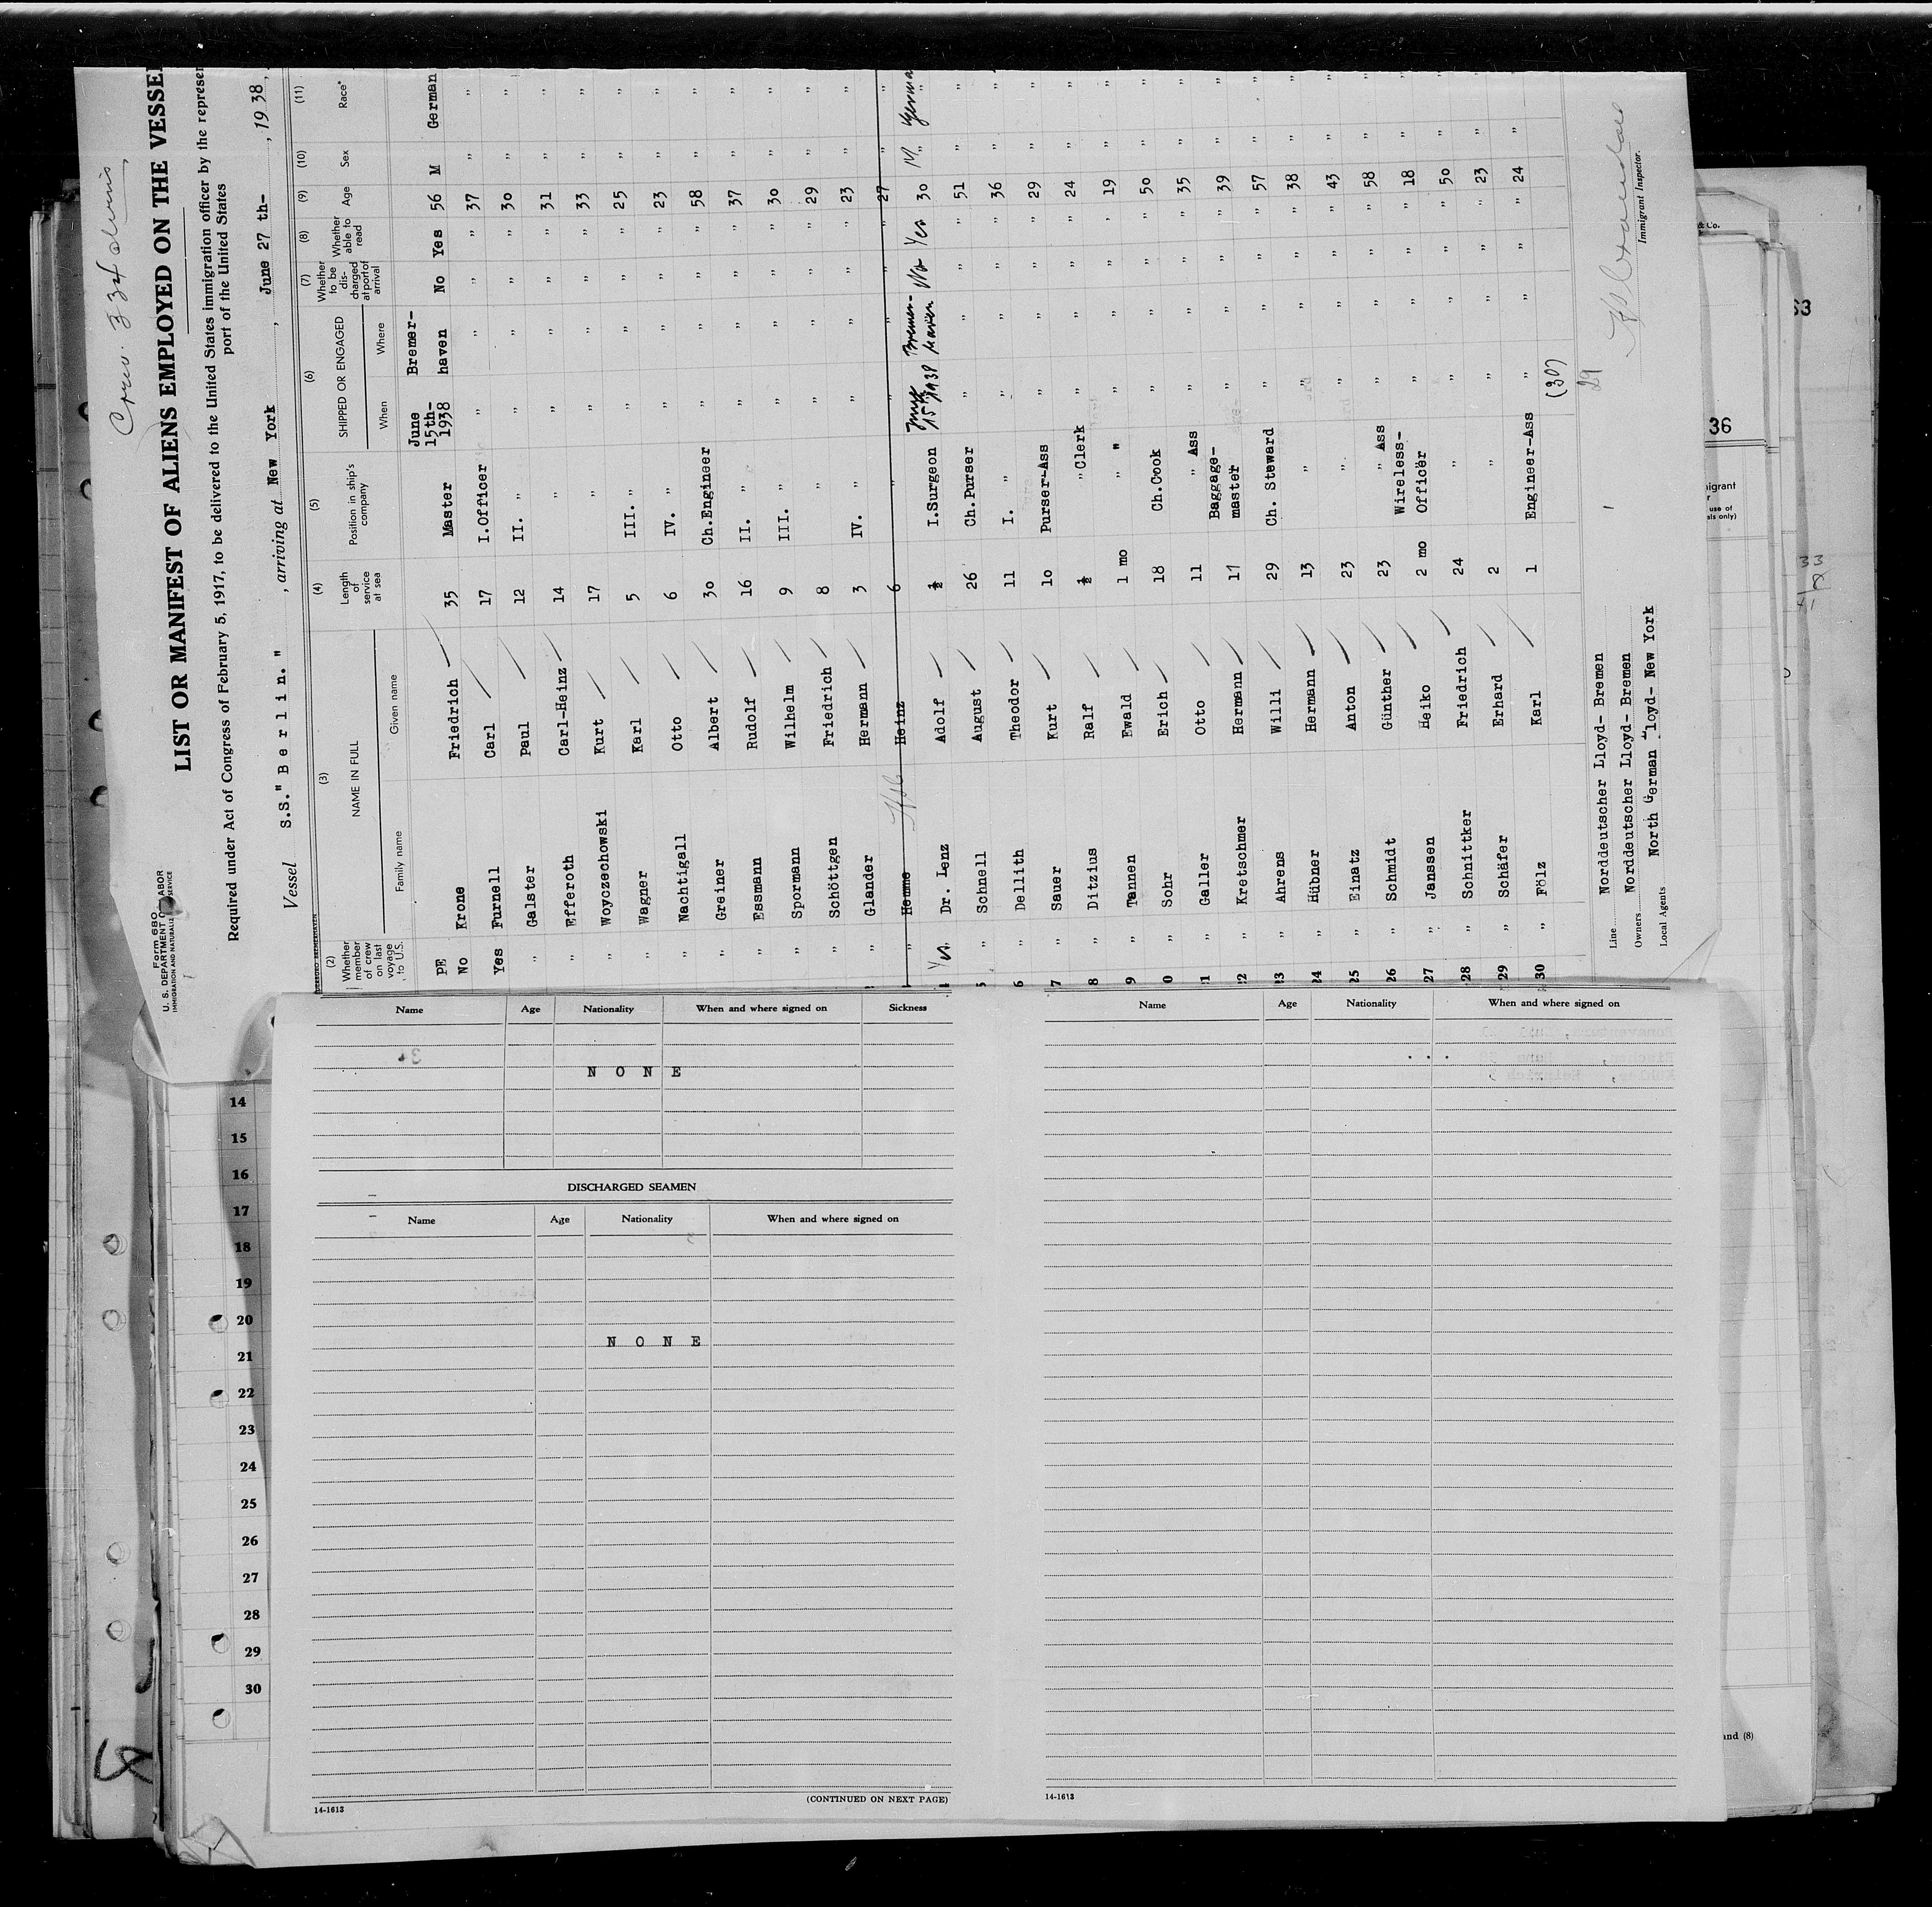 Form 680
U. S. DEPARTMENT OF LABOR
LIST OR MANIFEST OF ALIENS EMPLOYED ON THE VESSEL
Required under Act of Congress of February 5, 1917, to be delivered to the United States immigration officer by the represen
port of the United States
Vessel S.S. "B e r l i n." , arriving at New York , June 27 th- , 19 38,
(2) (3) (4) (5) (6) (7) (8) (9) (10) (11)
Whether member of crew on last voyage to U.S. NAME IN FULL Family name Given name Length of service at sea Position in ship's company SHIPPED OR ENGAGED When Where Whether to be discharged at port of arrival Whether able to read Age Sex Race*
PE
No Krone Friedrich 35 Master June 15th- 1938 Bremer-haven No Yes 56 M German
Yes Furnell Carl 17 I.Officer " " " " 37 " "
" Galster Paul 12 II. " " " " " 30 " "
" Efferoth Carl-Heinz 14 " " " " " 31 " "
" Woyczechowski Kurt 17 " " " " " 33 " "
" Wagner Karl 5 III. " " " " " 25 " "
" Nachtigall Otto 6 IV. " " " " " 23 " "
" Greiner Albert 30 Ch.Engineer " " " " 58 " "
" Essmann Rudolf 16 II. " " " " " 37 " "
" Spormann Wilhelm 9 III. " " " " " 30 " "
" Schöttgen Friedrich 8 " " " " " 29 " "
" Glander Hermann 3 IV. " " " " " 23 " "
" Heinz 6 " " " " " 27 " "
Yes. Dr. Lenz Adolf ½ I.Surgeon June 15th 1938 Bremer-haven No Yes 30 M German
5 " Schnell August 26 Ch.Purser " " " " 51 " "
6 " Dellith Theodor 11 I. " " " " " 36 " "
7 " Sauer Kurt 10 Purser-Ass " " " " 29 " "
8 " Ditzius Ralf ½ " Clerk " " " " 24 " "
9 " Tannen Ewald 1 mo " " " " " " 19 " "
0 " Sohr Erich 18 Ch.Cook " " " " 50 " "
21 " Galler Otto 11 " Ass " " " " 35 " "
22 " Kretschmer Hermann 17 Baggage-master " " " " 39 " "
23 " Ahrens Willi 29 Ch. Steward " " " " 57 " "
24 " Hübner Hermann 13 " " " " " 38 " "
25 " Einatz Anton 23 " " " " " 43 " "
26 " Schmidt Günther 23 " Ass " " " " 58 " "
27 " Janssen Heiko 2 mo Wireless-Officer " " " " 18 " "
28 " Schnittker Friedrich 24 " " " " " 50 " "
29 " Schäfer Erhard 2 " " " " " 23 " "
30 " Fölz Karl 1 Engineer-Ass " " " " 24 " "
(30)
29
Line Norddeutscher Lloyd- Bremen
Owners Norddeutscher Lloyd- Bremen
Local Agents North German Lloyd- New York
Immigrant Inspector.
Name Age Nationality When and where signed on Sickness
N O N E
DISCHARGED SEAMEN
Name Age Nationality When and where signed on
N O N E
(CONTINUED ON NEXT PAGE)
14-1613
Name Age Nationality When and where signed on
14-1613
14
15
16
17
18
19
20
21
22
23
24
25
26
27
28
29
30
& Co.
63
36
igrant
use of
als only)
33
8
41
and (8)